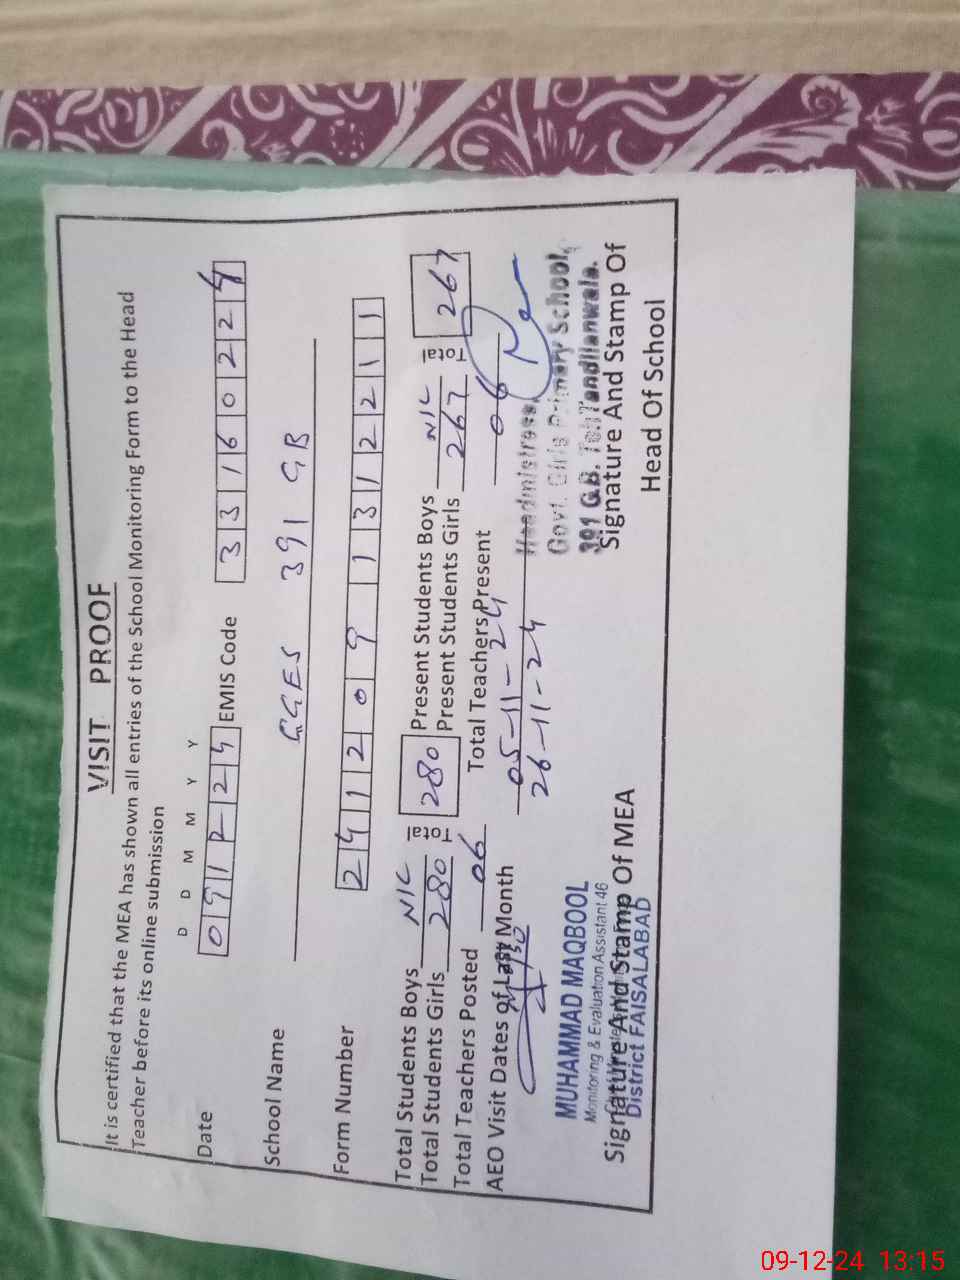 VISIT PROOF
It is certified that the MEA has shown all entries of the School Monitoring Form to the Head
Teacher before its online submission
D D M M Y Y
Date 091224 EMIS Code 33160224
School Name GGES 391 GB
Form Number 2412091312211
Total Students Boys NIL Total 280 Present Students Boys NIL Total 267
Total Students Girls 280 Present Students Girls 267
Total Teachers Posted 06 Total Teachers Present 06
AEO Visit Dates of Last Month 05-11-24
26-11-24
MUHAMMAD MAQBOOL
Monitoring & Evaluation Assistant 46
District FAISALABAD
Signature And Stamp Of MEA
Headmistress
Govt. Girls Primary School,
391 G.B. Teh Tandlianwala.
Signature And Stamp Of
Head Of School
09-12-24 13:15